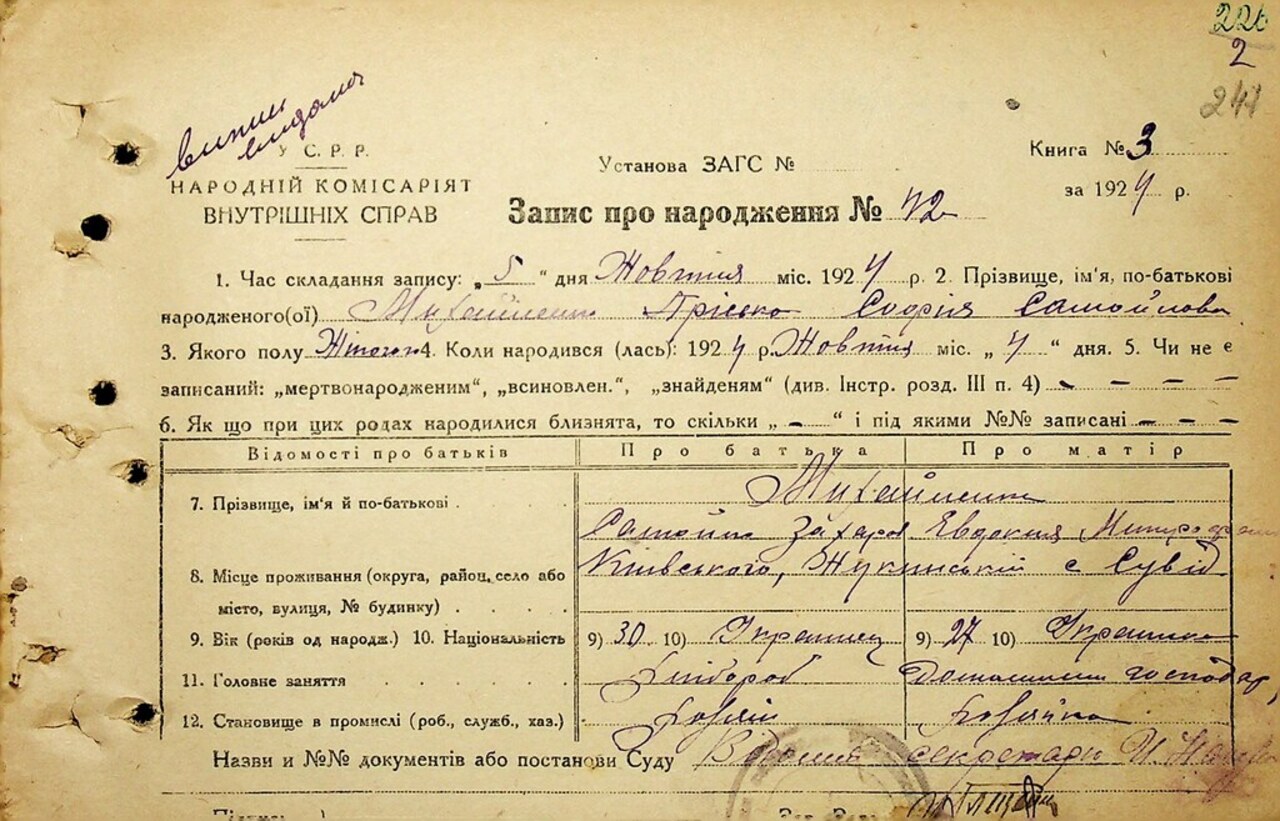 226
2
241
випис
видана
У С. Р. Р.
НАРОДНІЙ КОМІСАРІЯТ
ВНУТРІШНІХ СПРАВ
Установа ЗАГС №
Книга № 3
за 1924 р.
Запис про народження № 42
1. Час складання запису: „5“ дня Жовтня міс. 1924 р. 2. Прізвище, ім'я, по-батькові
народженого(ої) Михайленко Софія Самойлова
3. Якого полу 4. Коли народився (лась): 1924 р. Жовтня міс. „4“ дня. 5. Чи не є
записаний: „мертвонародженим“, „всиновлен.“, „знайденям“ (див. Інстр. розд. III п. 4) - - - -
6. Як що при цих родах народилися близнята, то скільки „-“ і під якими №№ записані - - -
Відомості про батьків Про батька Про матір
7. Прізвище, ім'я й по-батькові . Михайленко
Самойло Захаров Евдокия
8. Місце проживання (округа, район, село або Київського, Жукинський с Сувід
місто, вулиця, № будинку) . . . .
9. Вік (років од народж.) 10. Національність 9) 30 10) Украинец 9) 27 10) Украинка
11. Головне заняття . . . . . Хлібороб Домашнє господар
12. Становище в промислі (роб., служб., хаз.) Хозяїн Хозяйка
Назви и №№ документів або постанови Суду секретаря